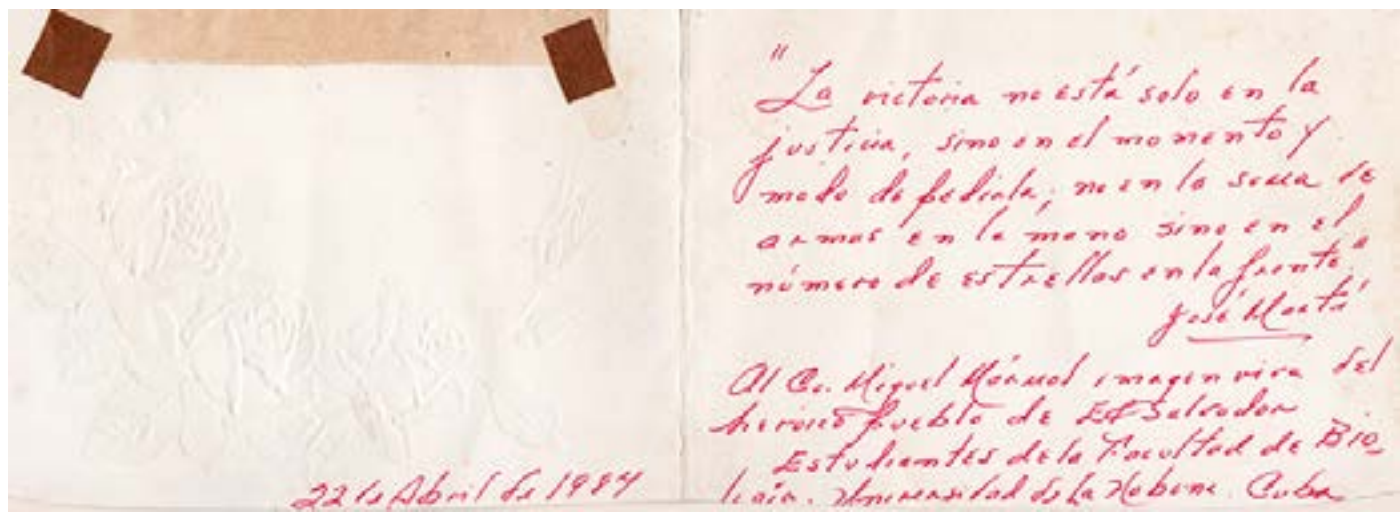 22 de Abril de 1984
"La victoria no está solo en la
justicia, sino en el momento y
modo de pedirla; no en la suma de
armas en la mano sino en el
número de estrellas en la frente."
José Martí
Al Co. Miguel Mármol imagen viva del
heroico pueblo de El Salvador
Estudiantes de la Facultad de Bio_
logía. Universidad de la Habana. Cuba